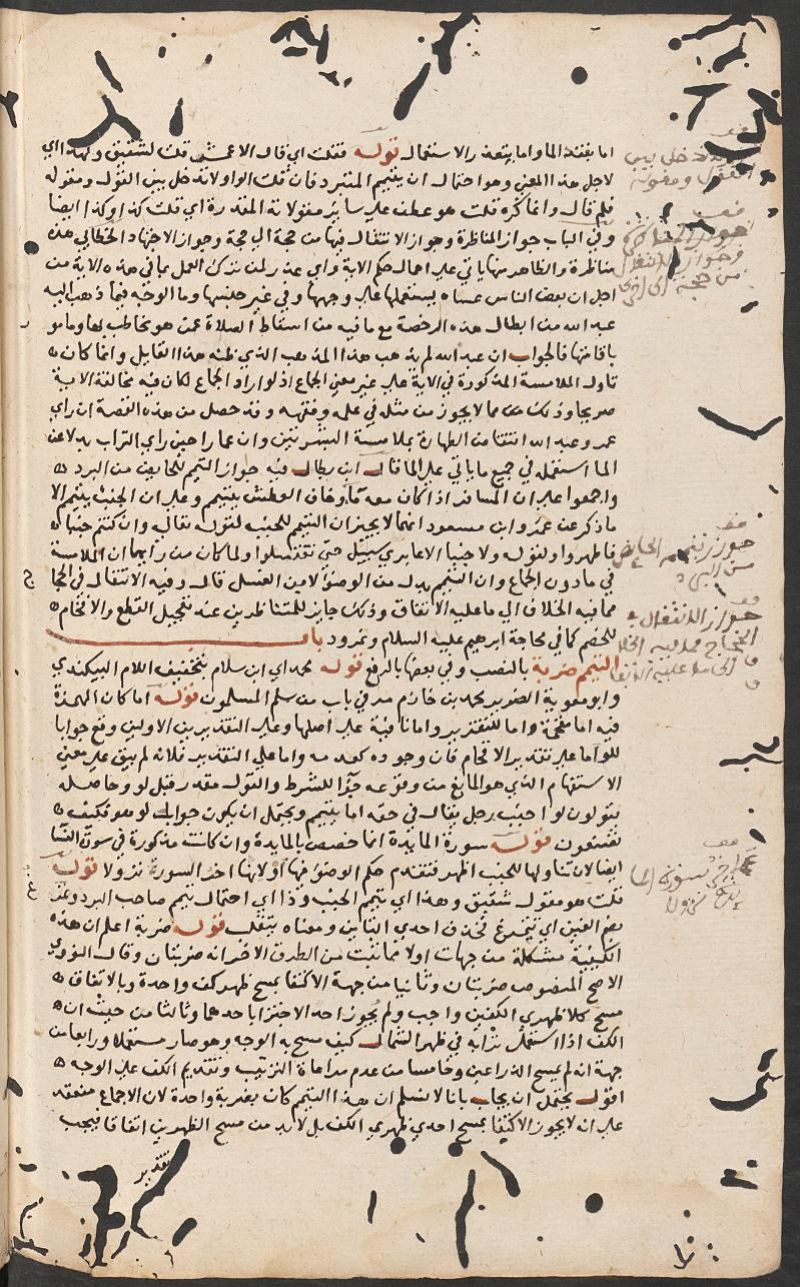 اما بفقد الماء واما بتعذر الاستعمال قوله فقلت اي قال الاعمش قلت لشقيق وكره اي
لاجل هذا المعنى وهو احتمال ان يتيمم المتبرد فان قلت الواو لا تدخل بين القول ومقوله
فلم قال وانما كره قلت هو عطف على سائر مقولاته المقدرة اي قلت كذا وكذا ايضا
وفي الباب جواز المناظرة وجواز الانتقال فيها من حجة الى حجة وجواز الاجتهاد الخطابي هذه
مناظرة والظاهر منها ياتي على اهمال حكم الاية واي عذر لمن ترك العمل بما في هذه الاية من
اجل ان بعض الناس عساه يستعملها على وجهها وفي غير حينها وما الوجه فيما ذهب اليه
عبد الله من ابطال هذه الرخصة مع ما فيه من اسقاط الصلاة عمن هو مخاطب بها ومامور
باقامتها فالجواب ان عبد الله لم يذهب هذا المذهب الذي ظنه هذا القايل وانما كان
تاول الملامسة المذكورة في الاية على غير معنى الجماع اذ لو اراد الجماع لكان فيه مخالفة الاية
صريحا وذلك مما لا يجوز من مثله في علمه وفقهه وقد حصل من هذه القصة ان راي
عمر وعبد الله انتقاض الطهارة بملامسة البشرتين وان عمارا حين راي التراب بدلا عن
الما استعمله في جميع ما ياتي عليه الما قال ابن بطال فيه جواز التيمم للخايف من البرد
واجمعوا على ان المسافر اذا كان معه ما وخاف العطش يتيمم وعلى ان الجنب يتيمم الا
ما ذكر عن عمر وابن مسعود انهما لا يجيزان التيمم للجنب لقوله تعالى وان كنتم جنبا
فاطهروا ولقوله ولا جنبا الا عابري سبيل حتى تغتسلوا ولما كان من رايهما ان الملامسة
في ما دون الجماع وان التيمم بدل من الوضوء لا من الغسل قال وفيه الانتقال في الحجاج
مما فيه الخلاف الى ما عليه الاتفاق وذلك جايز للمتناظرين عند تعجيل القطع والافحام
للخصم كما في محاجة ابرهيم عليه السلام ونمرود باب
التيمم ضربة بالنصب وفي بعضها بالرفع قوله محمد اي ابن سلام بتخفيف اللام البيكندي
وابو معوية الضرير محمد بن خازم مر في باب من سلم المسلمون قوله اما كان الهمزة
فيه اما مقحمة واما للتقرير واما نافية على اصلها وعلى التقديرين الاولين وقع جوابا
للو اما على تقدير الاقحام فان وجوده كعدمه واما على التقرير فلانه لم يبق على معنى
الاستفهام الذي هو المانع من وقوعه جزاء للشرط والقول مقدر قبل لو وحاصله
يقولون لو اجنب رجل يقال في حقه اما يتيمم ويحتمل ان يكون جواب لو هو فكيف
تصنعون قوله سورة المايدة انما خصص بالمايدة وان كانت مذكورة في سورة النسا
ايضا لان تناولها للجنب اظهر لتقدم حكم الوضوء فيها او لانها اخر السورة نزولا قوله
قلت هو مقول شقيق وهذا اي تيمم الجنب وذا اي احتمال تيمم صاحب البرد وتمرغ
بضم الغين اي تتمرغ فحذف احدى التائين ومعناه يتقلب قوله ضربة اعلم ان هذه
الكيفية مشكلة من جهات اولا مما ثبت من الطرق الاخر انه ضربتان وقال النووي
الاصح المنصوص ضربتان وثانيا من جهة الاكتفا بمسح ظهر كف واحدة وبالاتفاق
مسح كلا ظهري الكفين واجب ولم يجوز احد الاجتزا باحدهما وثالثا من حيث ان
الكف اذا استعمل ترابه في ظهر الشمال كيف مسح به الوجه وهو صار مستعملا ورابعا من
جهة انه لم يمسح الذراعين وخامسا من عدم مراعاة الترتيب وتقديم الكف على الوجه
اقول يحتمل ان يجاب بانا لا نسلم ان هذا التيمم كان بضربة واحدة لان الاجماع منعقد
على انه لا يجوز الاكتفا بمسح احدى ظهري الكف بل لا بد من مسح الظهرين اتفاقا فيجب
تقدير